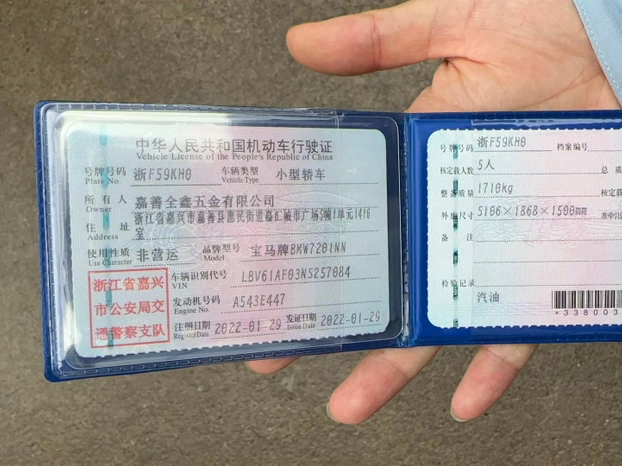 中华人民共和国机动车行驶证
Vehicle License of the People's Republic of China
号牌号码 浙F59KH0 车辆类型 小型轿车
Plate No. Vehicle Type
所有人 嘉善全鑫五金有限公司
Owner
住址 浙江省嘉兴市嘉善县惠民街道嘉汇城市广场5幢1单元1416
Address 室
使用性质 非营运 品牌型号 宝马牌BMW7201NN
Use Character Model
浙江省嘉兴
市公安局交
通警察支队
车辆识别代号 LBV61AF03NS257084
VIN
发动机号码 A543E447
Engine No.
注册日期 2022-01-29 发证日期 2022-01-29
Register Date Issue Date
号牌号码 浙F59KH0 档案编号
核定载人数 5人 总质
整备质量 1710kg 核定载
外廓尺寸 5106×1868×1500mm
备注
检验记录
汽油
*338003